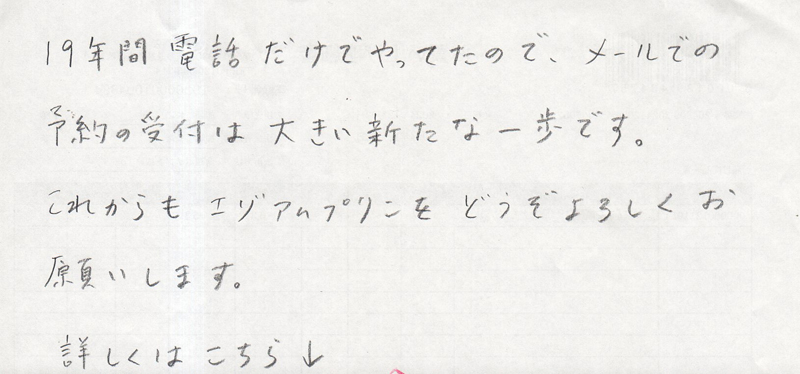 19年間 電話だけでやってたので、メールでの
予約の受付は 大きい新たな一歩です。
これからも エゾアムプリンを どうぞよろしくお
願いします。
詳しくは こちら↓